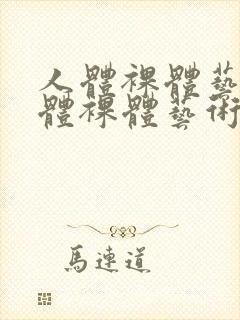 人體裸體藝
體裸體藝術
馬連道